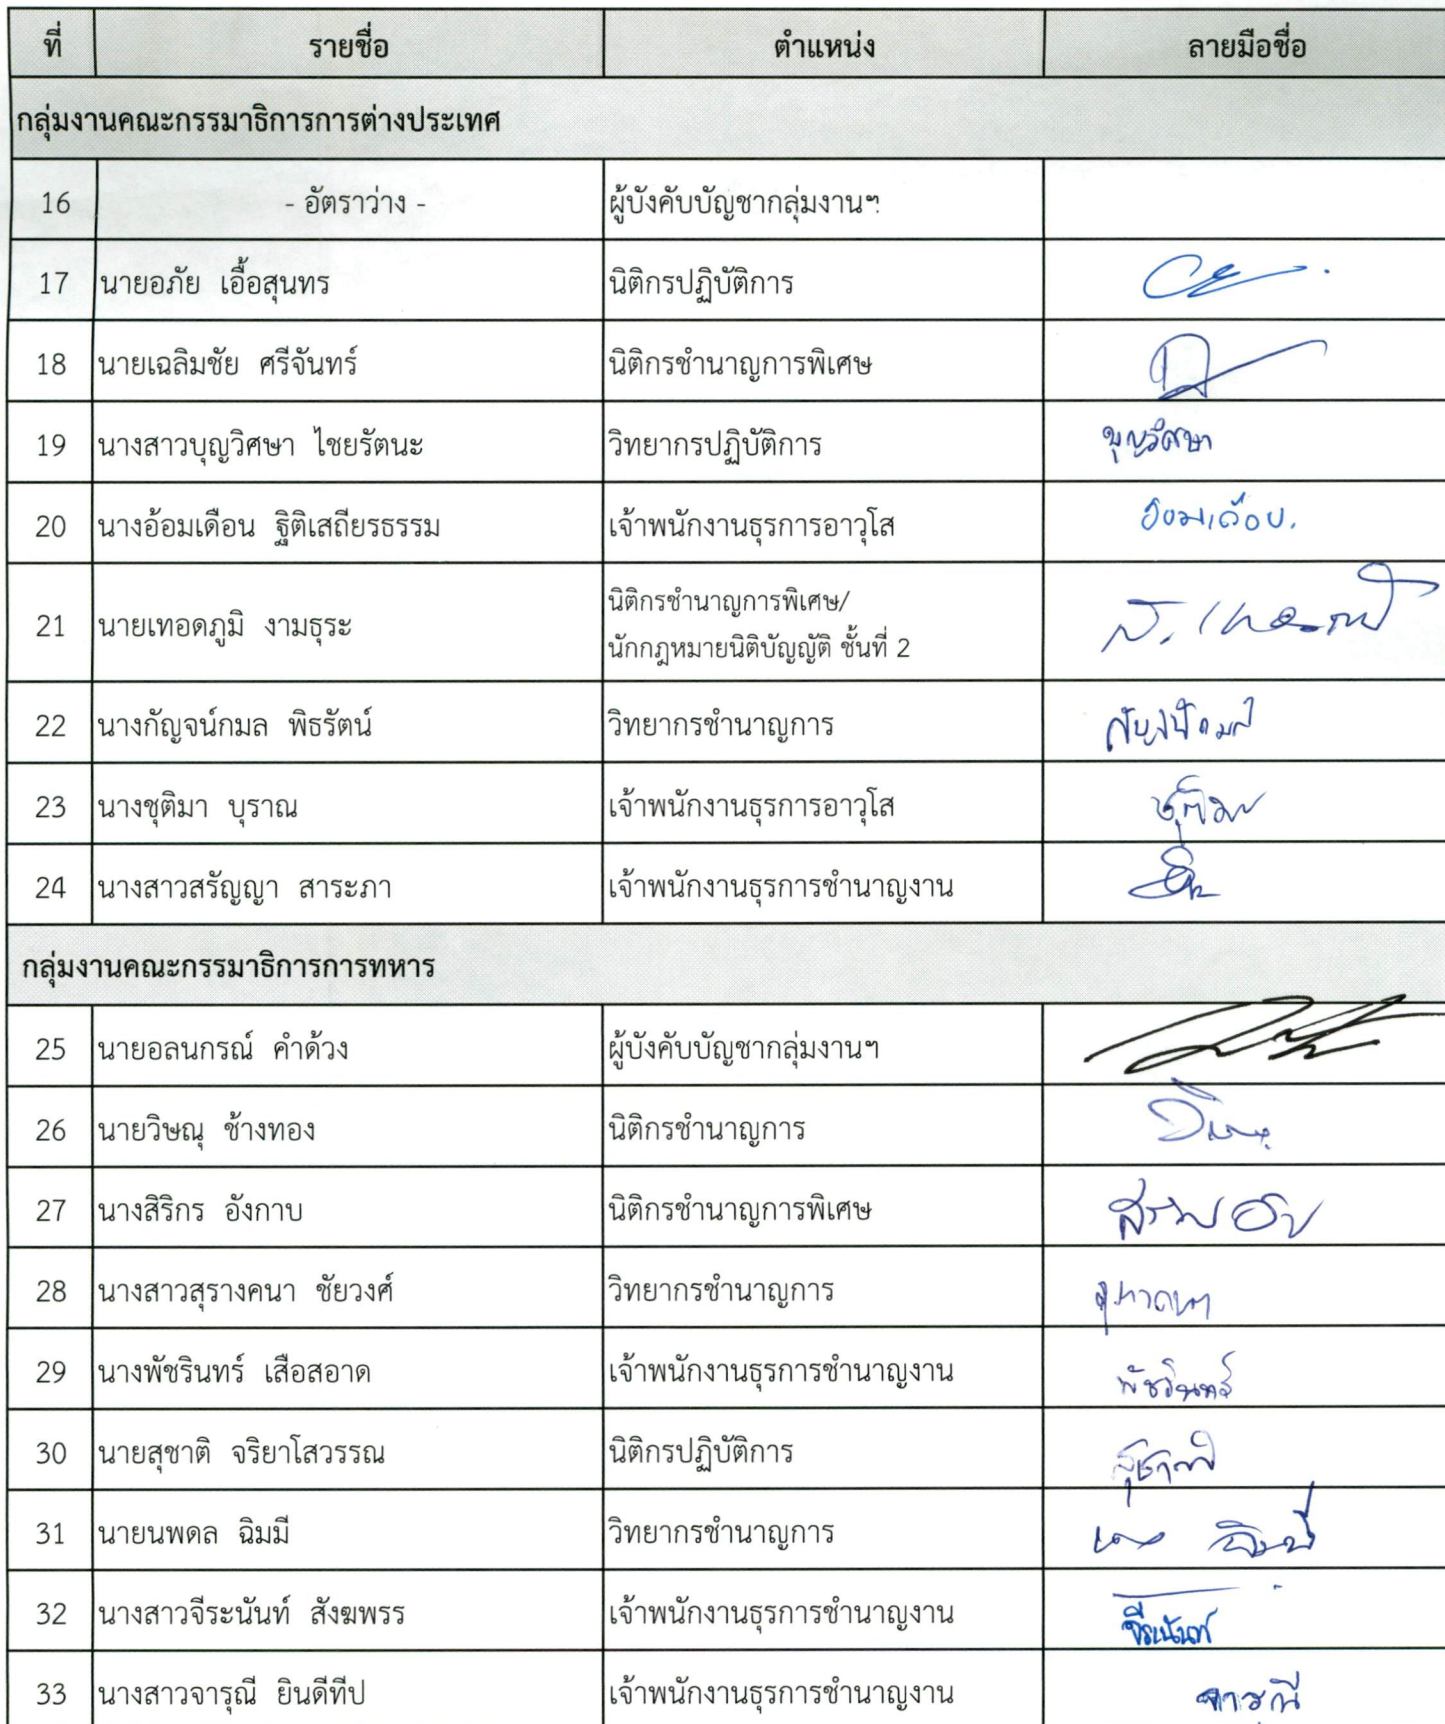 ที่ รายชื่อ ตำแหน่ง ลายมือชื่อ
กลุ่มงานคณะกรรมาธิการการต่างประเทศ
16 - อัตราว่าง - ผู้บังคับบัญชากลุ่มงานฯ
17 นายอภัย เอื้อสุนทร นิติกรปฏิบัติการ
18 นายเฉลิมชัย ศรีจันทร์ นิติกรชำนาญการพิเศษ
19 นางสาวบุญวิศษา ไชยรัตนะ วิทยากรปฏิบัติการ บุญวิศษา
20 นางอ้อมเดือน ฐิติเสถียรธรรม เจ้าพนักงานธุรการอาวุโส อ้อมเดือน.
21 นายเทอดภูมิ งามธุระ นิติกรชำนาญการพิเศษ/
นักกฎหมายนิติบัญญัติ ชั้นที่ 2
22 นางกัญจน์กมล พิธรัตน์ วิทยากรชำนาญการ กัญจน์กมล
23 นางชุติมา บุราณ เจ้าพนักงานธุรการอาวุโส ชุติมา
24 นางสาวสรัญญา สาระภา เจ้าพนักงานธุรการชำนาญงาน
กลุ่มงานคณะกรรมาธิการการทหาร
25 นายอลนกรณ์ คำด้วง ผู้บังคับบัญชากลุ่มงานฯ
26 นายวิษณุ ช้างทอง นิติกรชำนาญการ
27 นางสิริกร อังกาบ นิติกรชำนาญการพิเศษ
28 นางสาวสุรางคนา ชัยวงศ์ วิทยากรชำนาญการ สุรางคนา
29 นางพัชรินทร์ เสือสอาด เจ้าพนักงานธุรการชำนาญงาน พัชรินทร์
30 นายสุชาติ จริยาโสวรรณ นิติกรปฏิบัติการ สุชาติ
31 นายนพดล ฉิมมี วิทยากรชำนาญการ
32 นางสาวจีระนันท์ สังฆพรร เจ้าพนักงานธุรการชำนาญงาน จีระนันท์
33 นางสาวจารุณี ยินดีทีป เจ้าพนักงานธุรการชำนาญงาน จารุณี